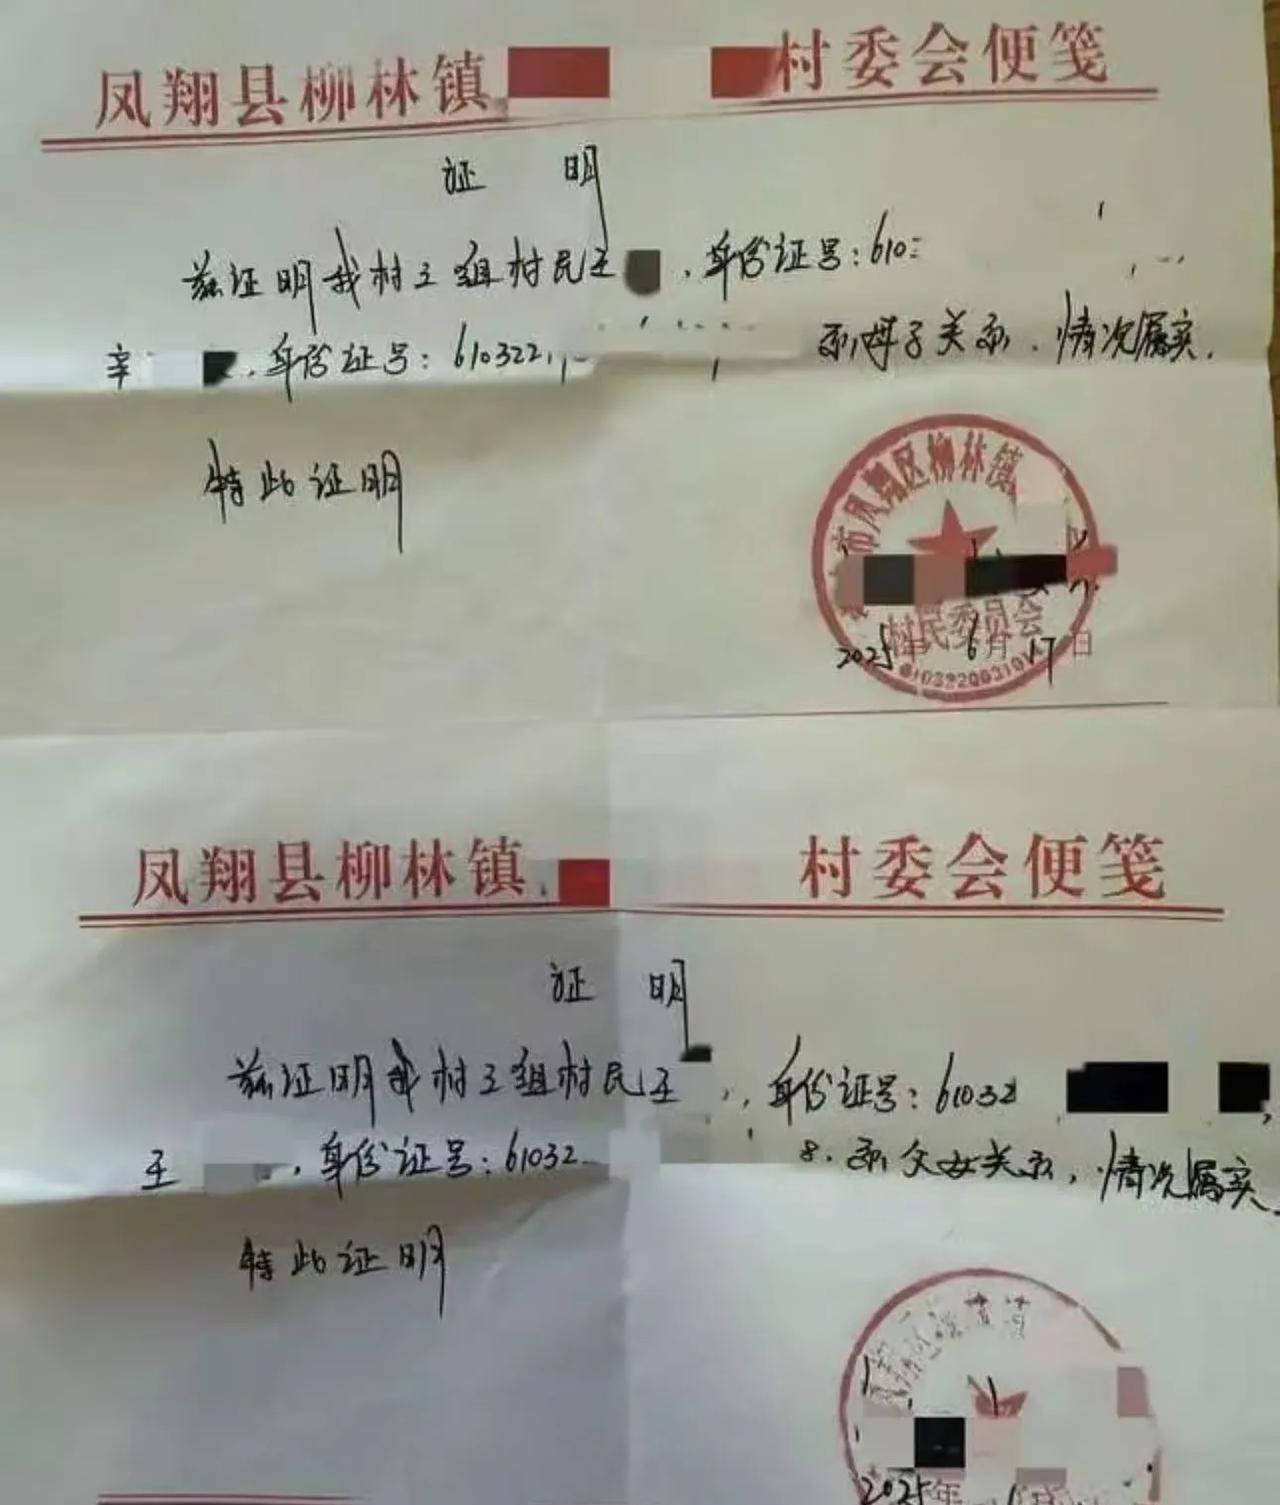 凤翔县柳林镇 村委会便笺
证 明
兹证明我村三组村民王 ，身份证号：610
辛 ，身份证号：610322 系母子关系，情况属实，
特此证明
市凤翔区柳林镇
村民委员会
2025年6月17日
凤翔县柳林镇 村委会便笺
证 明
兹证明我村三组村民王 ，身份证号：61032
王 ，身份证号：61032 8，系父女关系，情况属实
特此证明
2025年